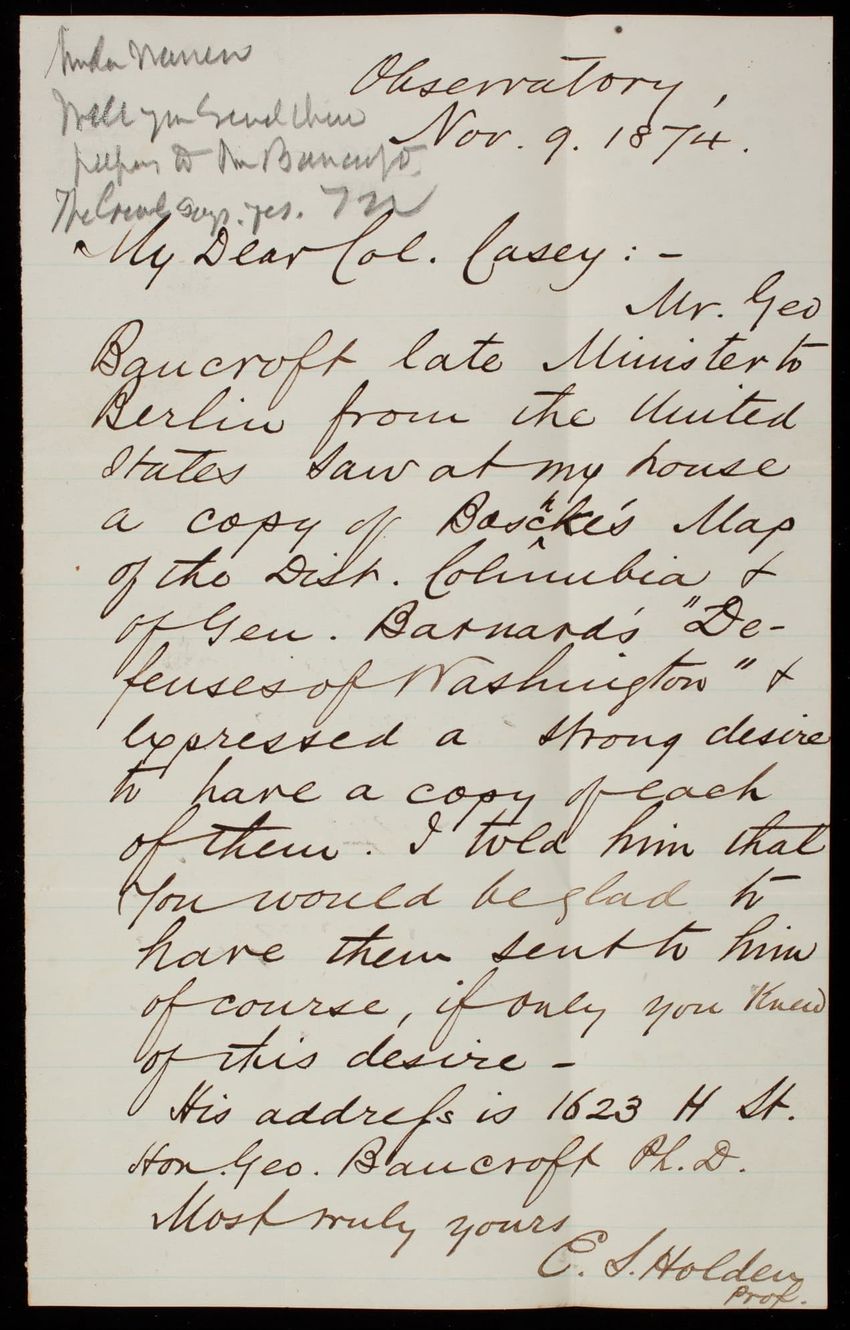 Will you send these
papers to Mr Bancroft.
The Genl says yes.
Observatory,
Nov. 9. 1874.
My Dear Col. Casey : -
Mr. Geo
Bancroft late Minister to
Berlin from the United
States saw at my house
a copy of Boschke's Map
of the Dist. Columbia &
of Gen. Barnard's "De-
fenses of Washington" &
expressed a strong desire
to have a copy of each
of them. I told him that
you would be glad to
have them sent to him
of course, if only you knew
of this desire -
His address is 1623 H St.
Hon. Geo. Bancroft Ph. D.
Most truly yours
E. S. Holden
Prof.